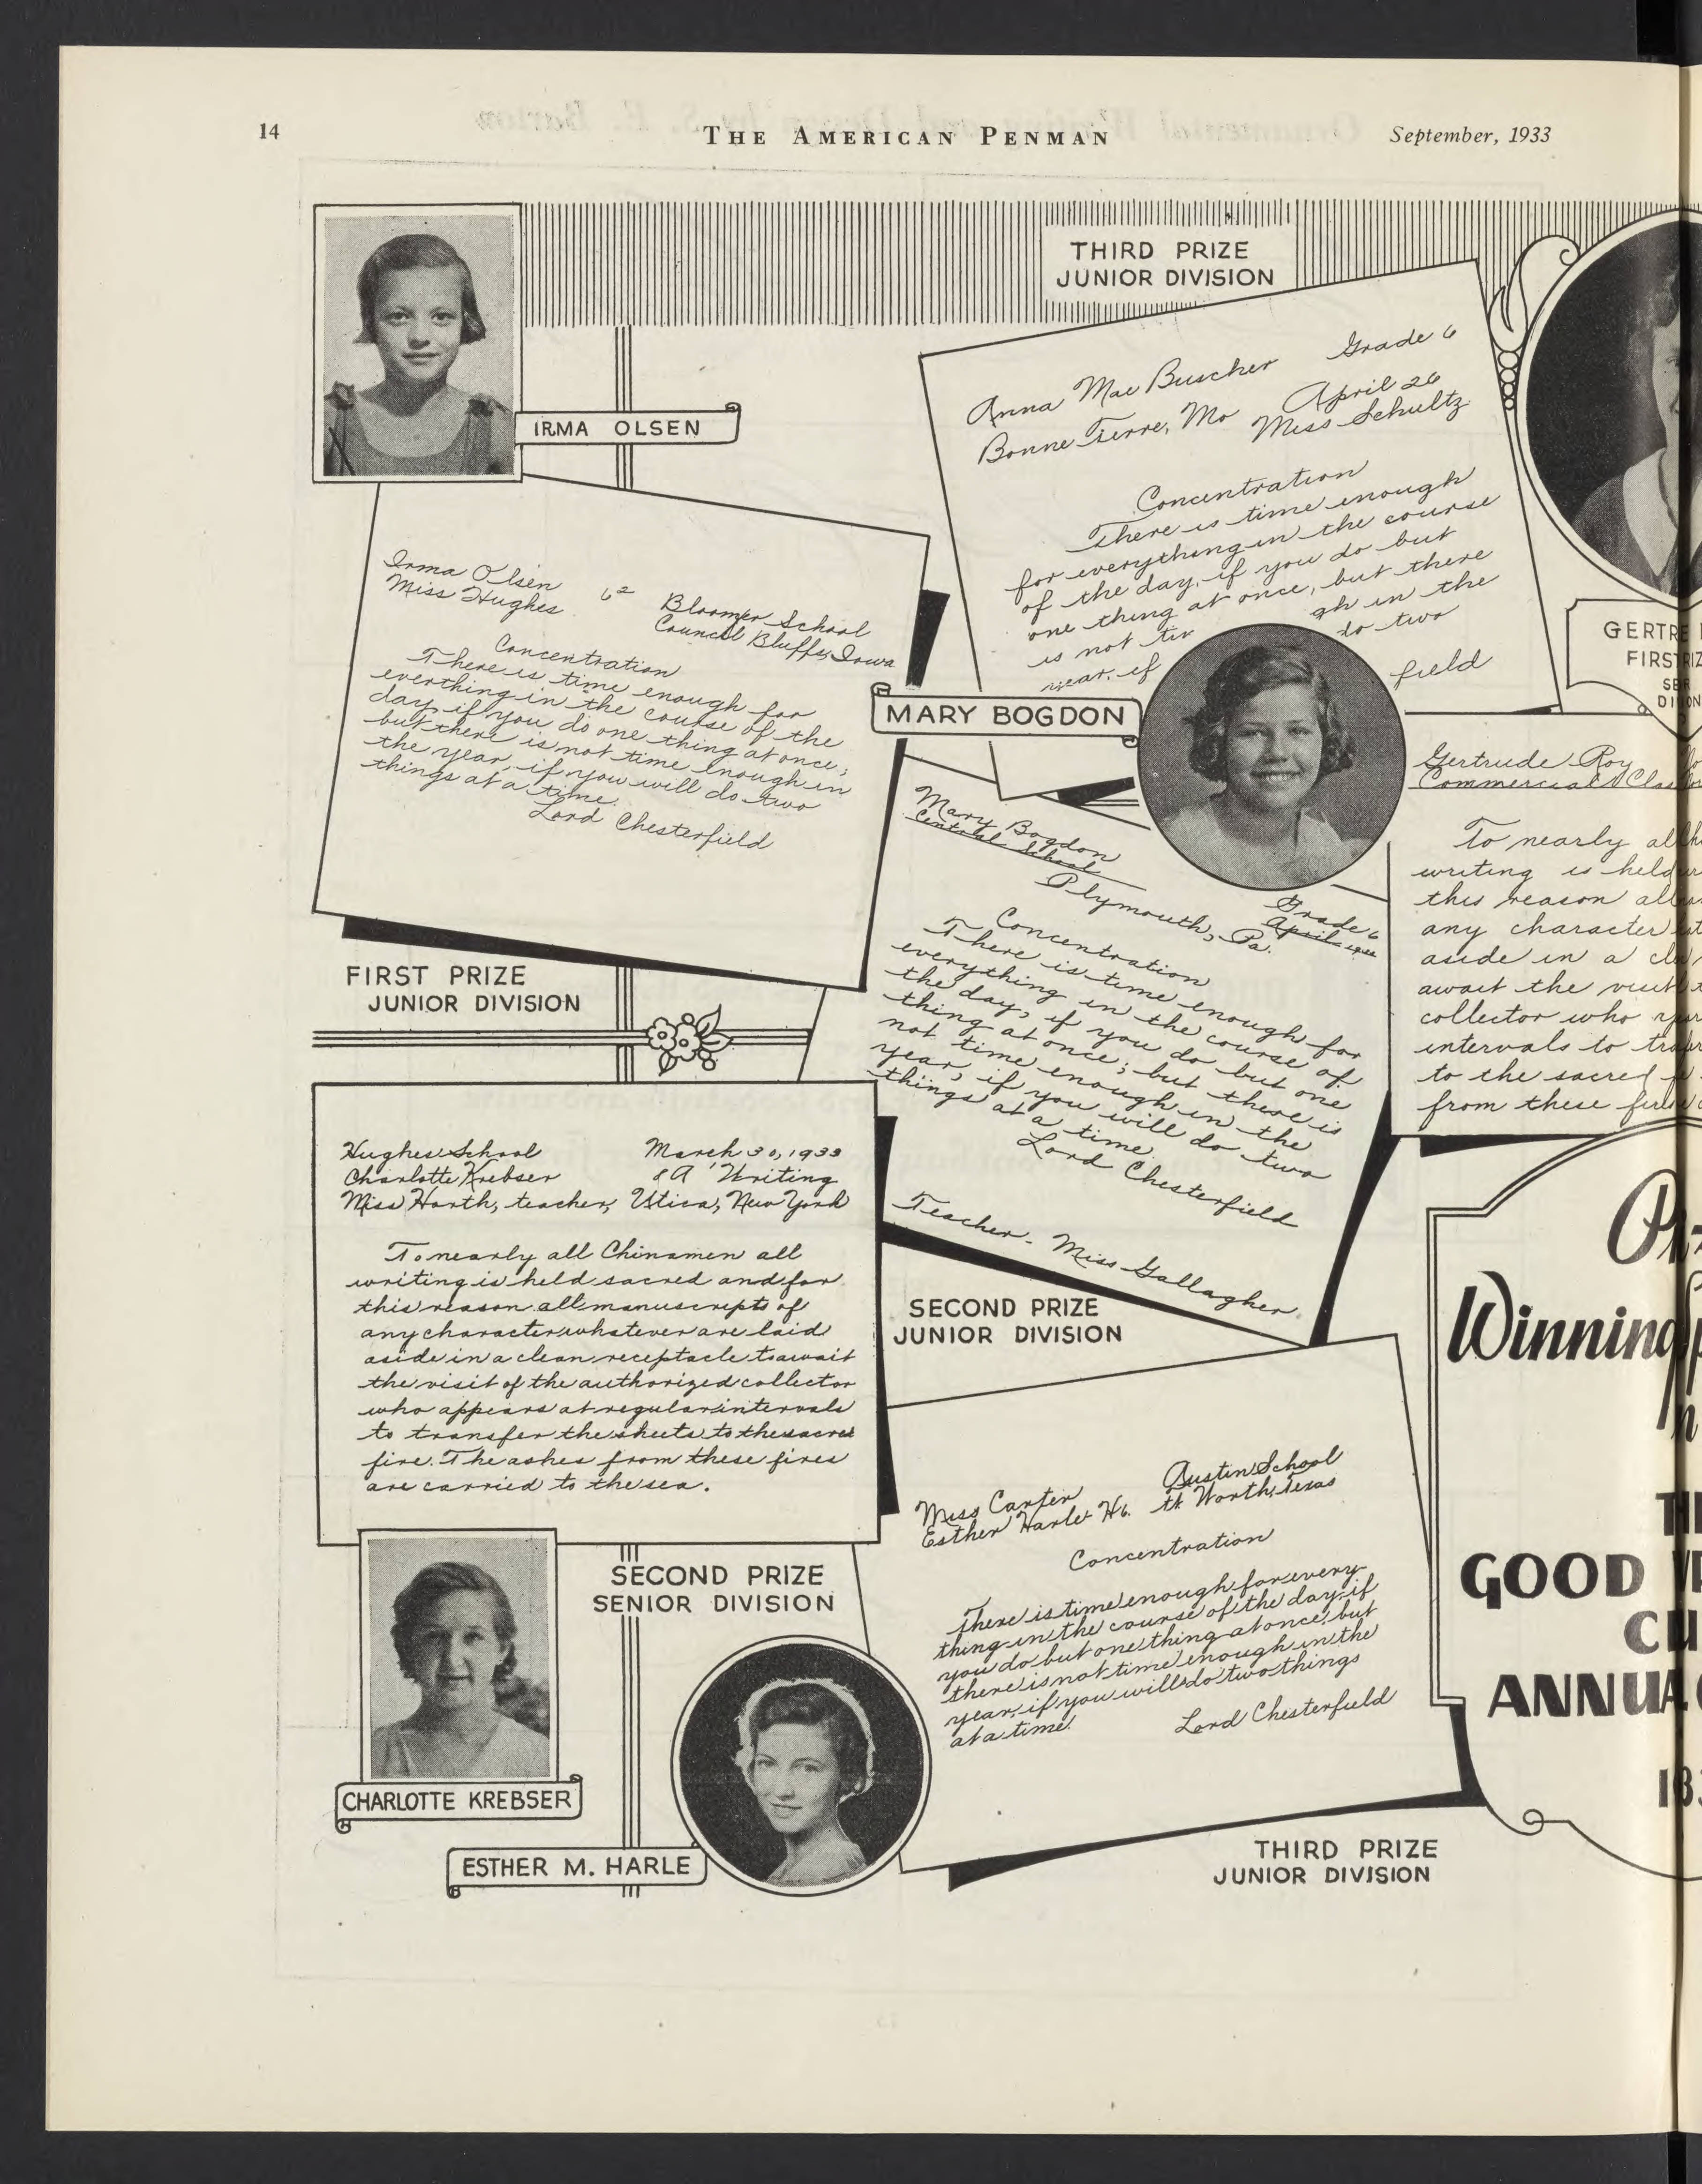 14
THE AMERICAN PENMAN
September, 1933
THIRD PRIZE
JUNIOR DIVISION
IRMA OLSEN
Anna Mae Buscher Grade 6
Bonne Terre, Mo April 26
Miss Schultz
Concentration
There is time enough
for everything in the course
of the day, if you do but
one thing at once, but there
is not in the
year, if do two
field
Irma Olsen 6² Bloomer School
Miss Hughes Council Bluffs, Iowa
Concentration
There is time enough for
everthing in the course of the
day, if you do one thing at once;
but there is not time enough in
the year, if you will do two
things at a time.
Lord Chesterfield
FIRST PRIZE
JUNIOR DIVISION
MARY BOGDON
Mary Bogdon Grade 6
Central School April
Plymouth, Pa.
Concentration
There is time enough for
everything in the course of
the day, if you do but one
thing at once; but there is
not time enough in the
year, if you will do two
things at a time.
Lord Chesterfield
Teacher - Miss Gallagher.
SECOND PRIZE
JUNIOR DIVISION
FIRST
Gertrude Roy
Commercial
To nearly
writing is held
this reason
any character
aside in a
await the
collector who
intervals to
to the sacred
from these
Hughes School March 30, 1933
Charlotte Krebser 8A Writing
Miss Harth, teacher, Utica, New York
To nearly all Chinamen all
writing is held sacred and for
this reason all manuscripts of
any character whatever are laid
aside in a clean receptacle to await
the visit of the authorized collector
who appears at regular intervals
to transfer the sheets to the sacred
fire. The ashes from these fires
are carried to the sea.
SECOND PRIZE
SENIOR DIVISION
CHARLOTTE KREBSER
ESTHER M. HARLE
Miss Carter Austin School
Esther Harle H6. Ft Worth, Texas
Concentration
There is time enough for every
thing in the course of the day, if
you do but one thing at once, but
there is not time enough in the
year, if you will do two things
at a time.
Lord Chesterfield
THIRD PRIZE
JUNIOR DIVISION
Winning
GOOD